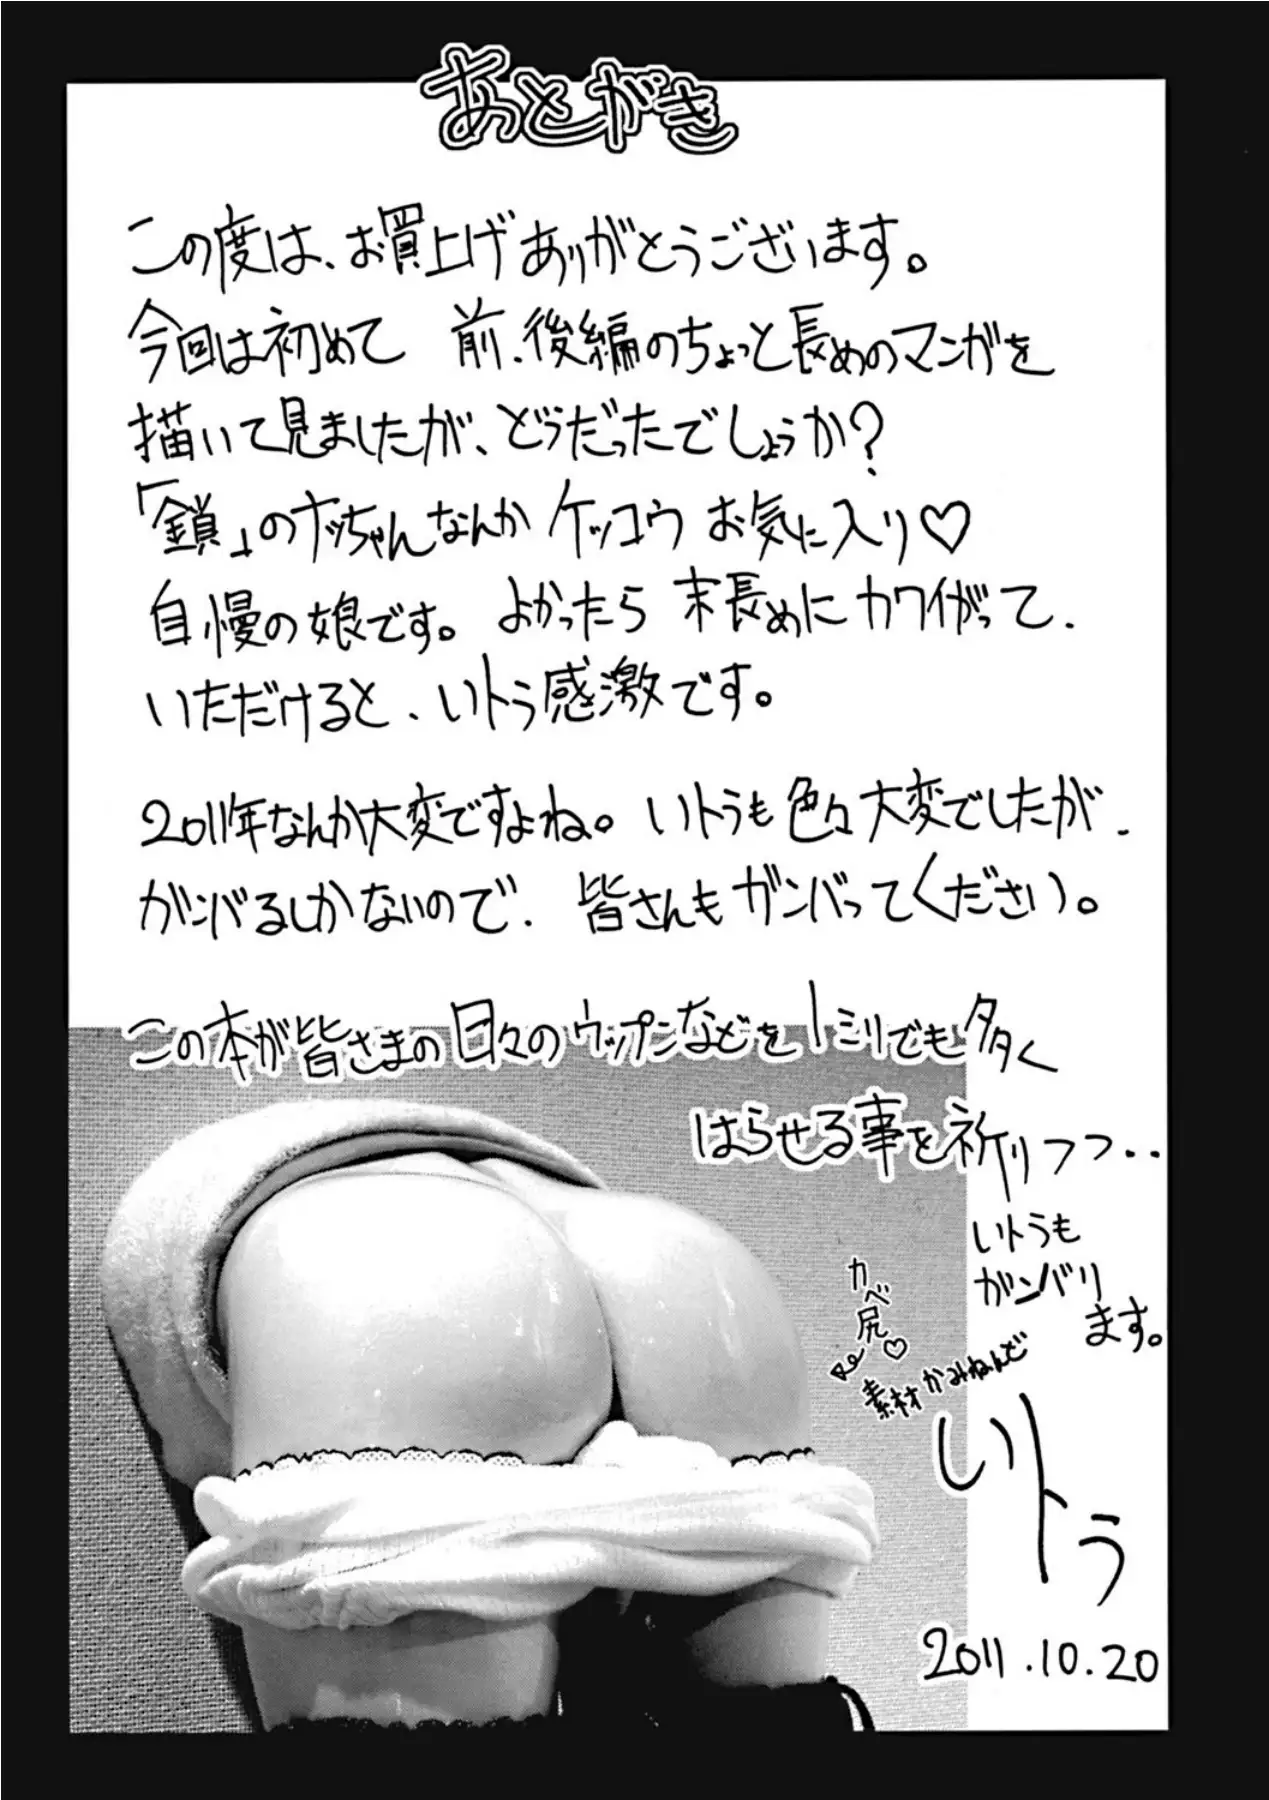 あとがき
この度は、お買上げありがとうございます。
今回は初めて 前、後編のちょっと長めのマンガを
描いて見ましたが、どうだったでしょうか?
「鎖」のナッちゃんなんか ケッコウ お気に入り♡
自慢の娘です。よかったら 末長めにカワイがって、
いただけると、いトう感激です。
2011年なんか大変ですよね。いトうも色々大変でしたが、
ガンバるしかないので、皆さんもガンバってください。
この本が皆さまの日々のウップンなどを1ミリでも多く
はらせる事を祈りつつ・・
いトうも
ガンバり
ます。
カベ尻♡
素材 かみねんど
いトう
2011.10.20